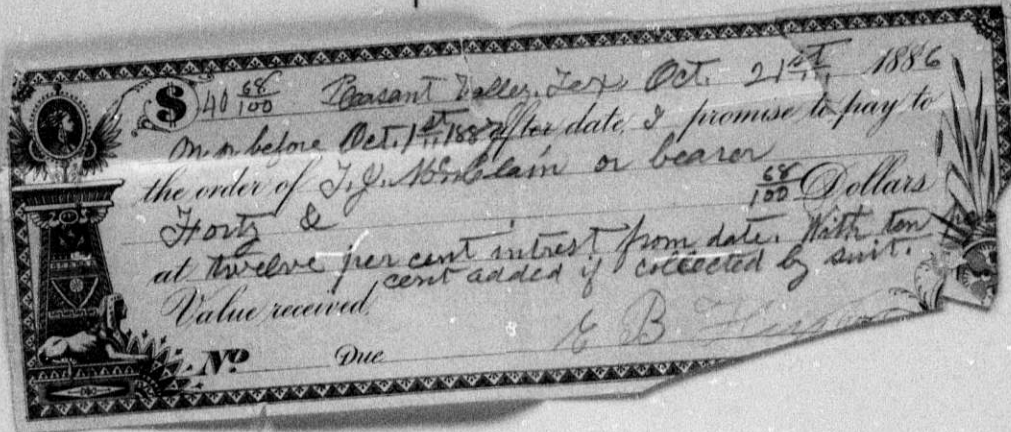 $ 40 68/100 Peasant Valley, Tex. Oct. 21st 1886
On or before Oct. 1st 1887 after date, I promise to pay to
the order of T. J. McClain or bearer
Forty & 68/100 Dollars
at twelve per cent intrest from date. With ten per
cent added if collected by suit.
Value received
No Due E B